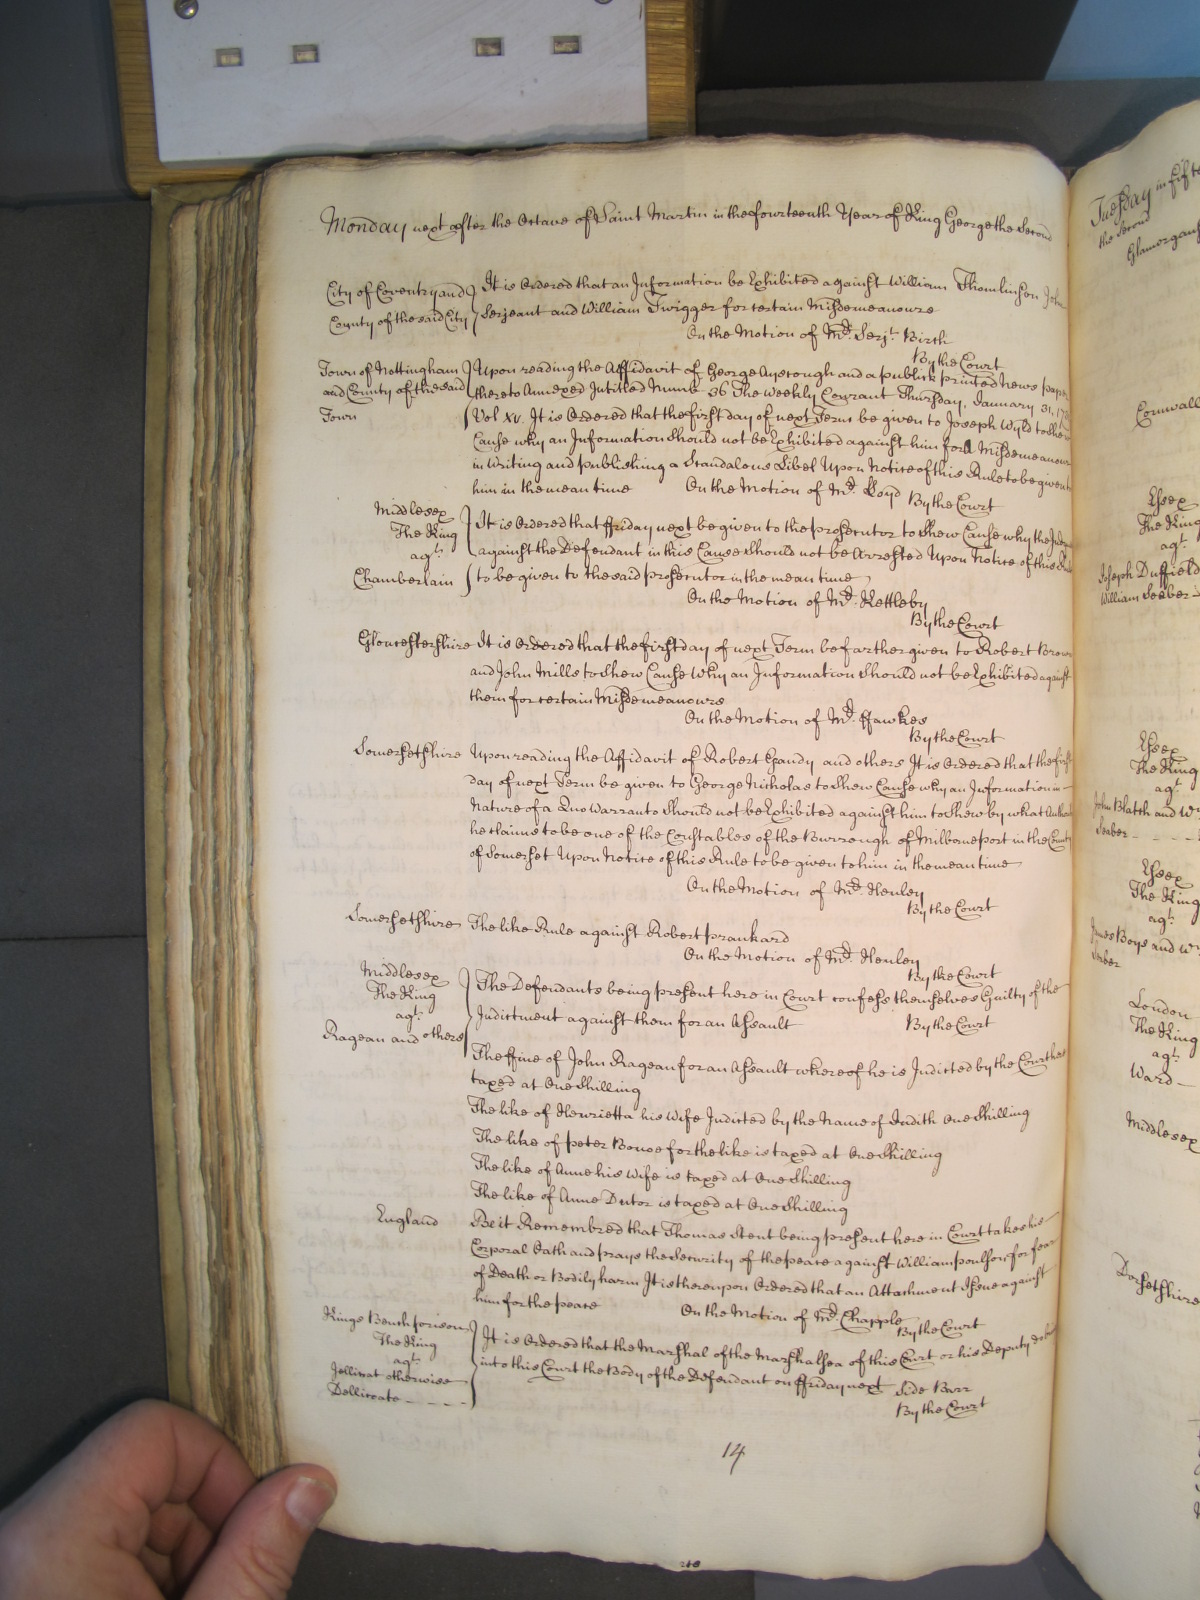 Monday next after the Octave of Saint Martin in the fourteenth Year of King George the Second
City of Coventry and County of the said City
It is Ordered that an Information be Exhibited against William Thomlinson John
Serjeant and William Twigger for certain Misdemeanours
On the Motion of Mr. Serjt. Birch
By the Court
Town of Nottingham and County of the said Town
Upon reading the Affidavit of George Ayscough and a publick printed News paper
thereto Annexed Intitled Numb 36 The Weekly Courant Thursday, January 31, 17
Vol XV. It is Ordered that the first day of next Term be given to Joseph Wyld to shew
Cause why an Information should not be Exhibited against him for a Misdemeanour
in Writing and publishing a Scandalous Libel Upon Notice of this Rule to be given to
him in the mean time On the Motion of Mr. Lloyd By the Court
Middlesex
The King
agt.
Chamberlain
It is Ordered that ffriday next be given to the prosecutor to shew Cause why the
against the Defendant in this Cause should not be Arrested Upon Notice of this Rule
to be given to the said prosecutor in the mean time
On the Motion of Mr. Kettleby
By the Court
Gloucestershire It is Ordered that the first day of next Term be farther given to Robert Brown
and John Mills to shew Cause Why an Information should not be Exhibited against
them for certain Misdemeanours
On the Motion of Mr. ffawkes
By the Court
Somersetshire Upon reading the Affidavit of Robert Gandy and others It is Ordered that the first
day of next Term be given to George Nicholas to shew Cause why an Information in
Nature of a Quo Warranto should not be Exhibited against him to shew by what Authority
he claims to be one of the Constables of the Burrough of Milborneport in the County
of Somerset Upon Notice of this Rule to be given to him in the mean time
On the Motion of Mr. Henley
By the Court
Somersetshire The like Rule against Robert prankard
On the Motion of Mr. Henley
By the Court
Middlesex
The King
agt.
Ragean and others
The Defendants being present here in Court confess themselves Guilty of the
Indictment against them for an Assault By the Court
The ffine of John Ragean for an Assault whereof he is Indicted by the Court he is
taxed at One Shilling
The like of Henrietta his Wife Indicted by the Name of Judith One Shilling
The like of peter Bonoe for the like is taxed at One Shilling
The like of Anne his Wife is taxed at One Shilling
The like of Anne Dutor is taxed at One Shilling
England Be it Remembred that Thomas Stent being present here in Court takes his
Corporal Oath and prays the Security of the peace against William poulson for fear
of Death or Bodily harm It is thereupon Ordered that an Attachment Issue against
him for the peace On the Motion of Mr. Chapple
By the Court
Kings Bench prison
The King
agt.
Jellicoat otherwise
Dellicoate
It is Ordered that the Marshal of the Marshalsea of this Court or his Deputy do bring
into this Court the Body of the Defendant on ffriday next Side Barr
By the Court
14
Tuesday in
the Second
Glamorgan
Cornwall
Essex
The King
agt.
Joseph Duffield
William Seaber
Essex
The King
agt.
John Blatch and W
Seaber
Essex
The King
agt.
James Boys and W
Seaber
London
The King
agt.
Ward
Middlesex
Dorsetshire